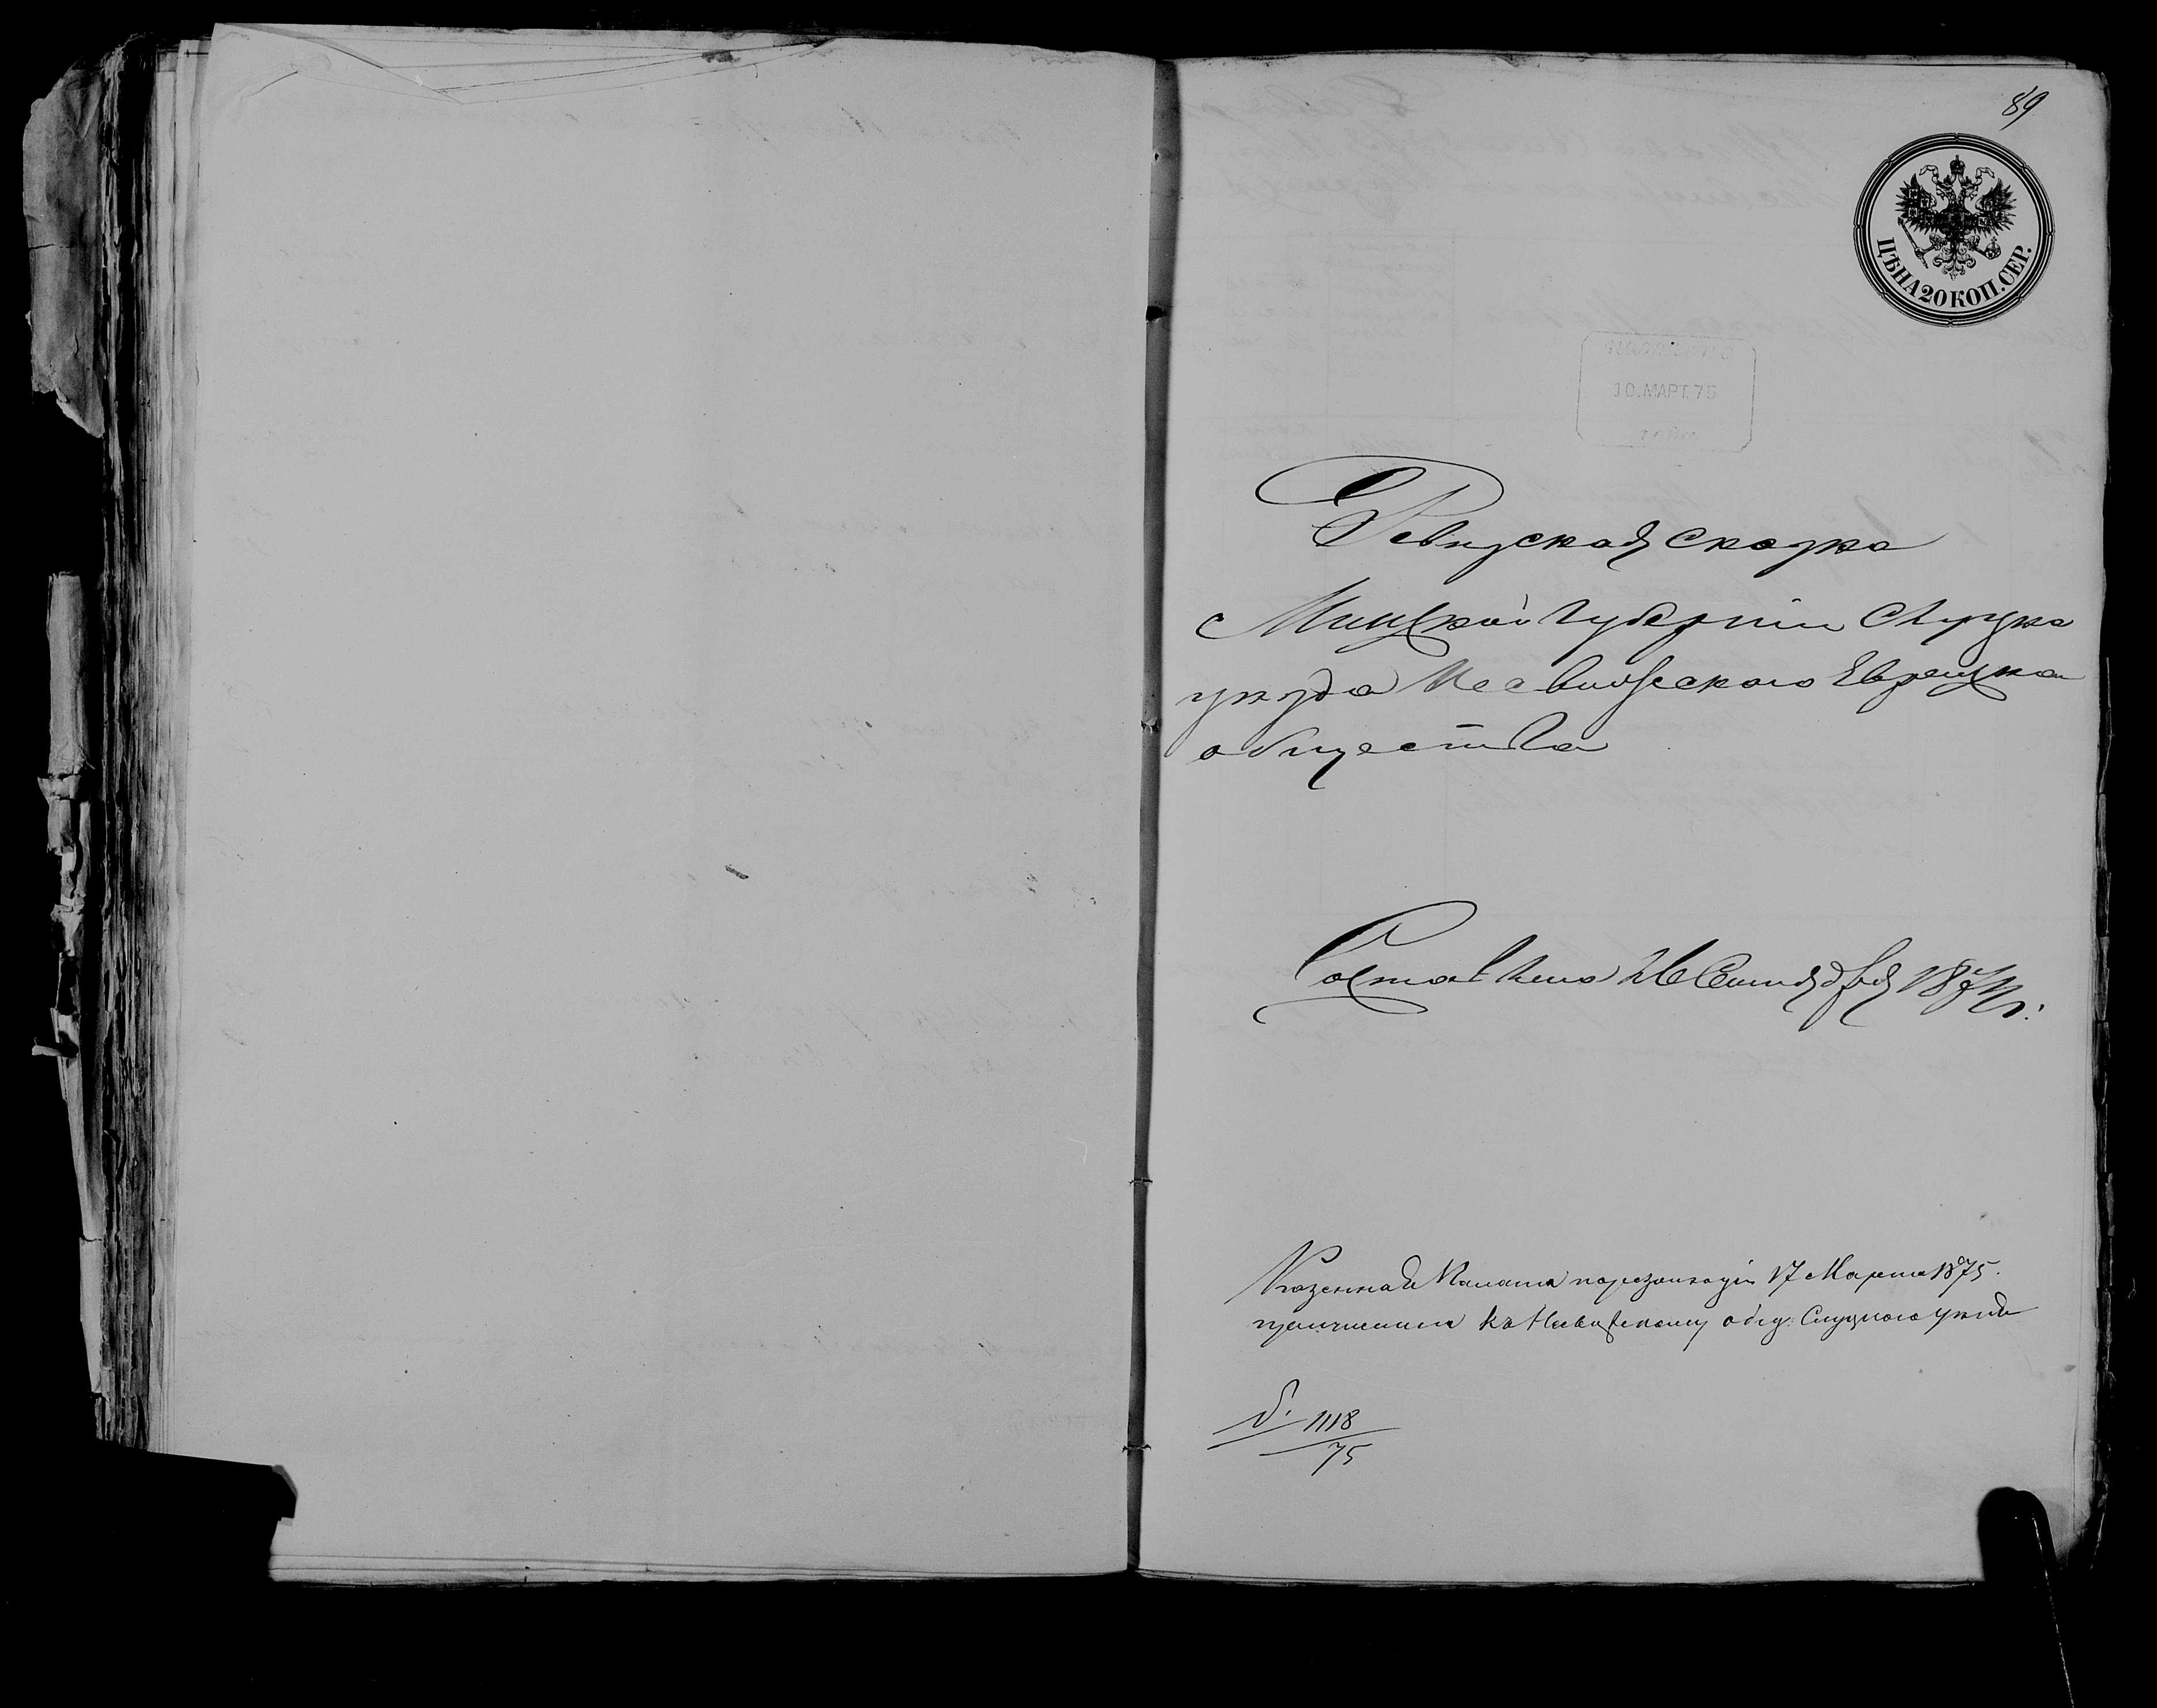 89
ЦѢНА 20 КОП. СЕР.
10. МАРТ. 75
Ревизская сказка
Минской губерніи Слуцка
уѣзда Несвижского Еврейска
общества
Составлена Сентября 1874 г.
Казенная Палата по резолюціи 17 Марта 1875.
причислила къ Несвижскому общ. Слуцкого уѣзда
д. 1118
75